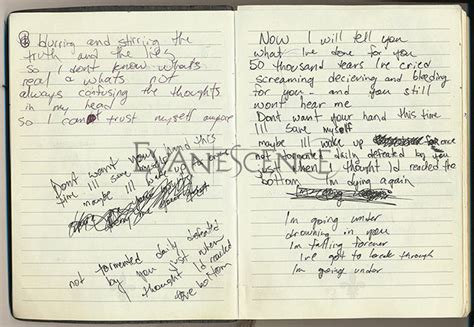 blurring and stirring the
truth and the lies
so I dont know whats
real a whats not
always confusing the thoughts
in my head
so I cant trust myself anymore
Dont want your hand this
time Ill save myself
maybe Ill wake up
not tormented daily defeated
by you just when
I thought Id reached
the bottom
Now I will tell you
what Ive done for you
50 thousand tears Ive cried
screaming decieving and bleeding
for you - and you still
wont hear me
Dont want your hand this time
Ill save myself
maybe Ill wake up for once
not tormented daily defeated by you
just when I thought Id reached the
bottom Im dying again
Im going under
drowning in you
Im falling forever
Ive got to break through
Im going under
EVANESCENCE